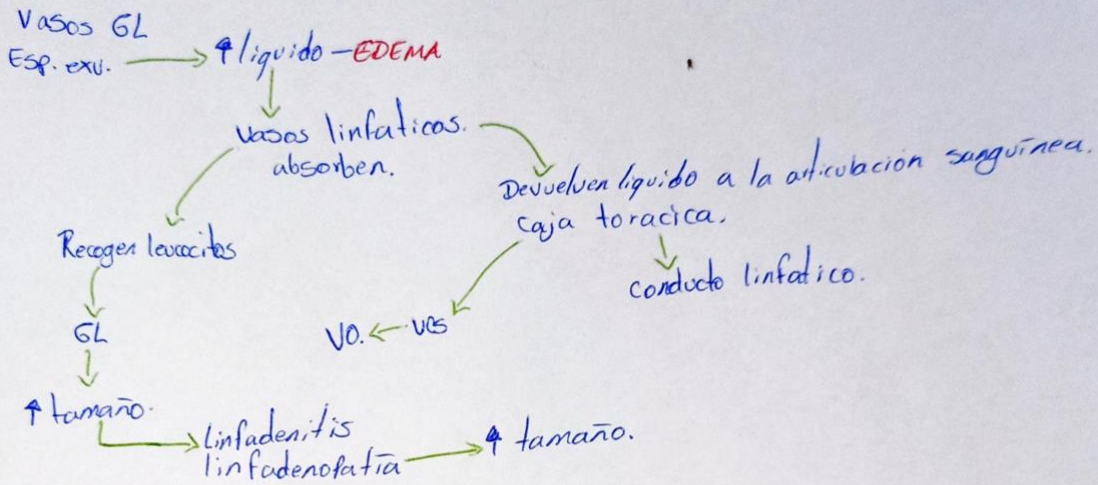 Vasos GL
Esp. exv. → ↑ liquido - EDEMA
Vasos linfaticos.
absorben.
Devuelven liquido a la articulación sanguínea.
caja toracica.
Recogen leucocitos
conducto linfatico.
GL
VO. ← VCS
↑ tamaño.
Linfadenitis
linfadenopatía → ↑ tamaño.